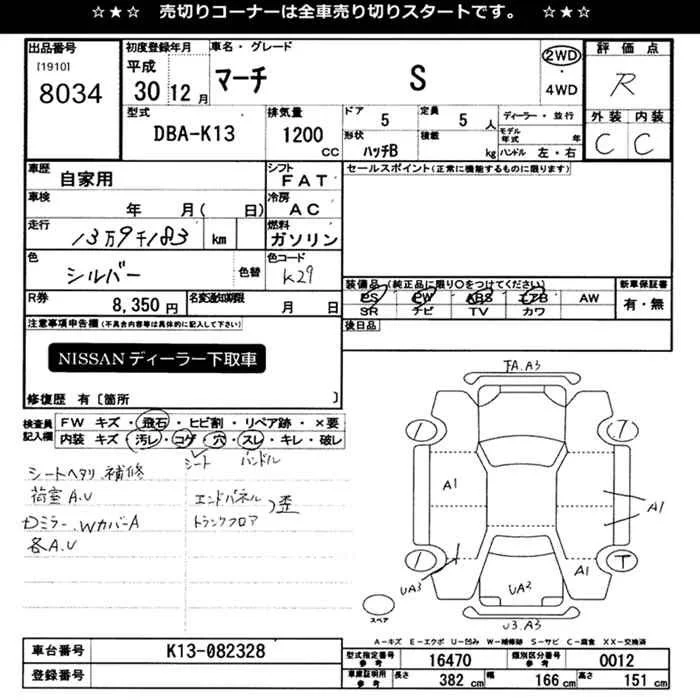 ☆★☆ 売切りコーナーは全車売り切りスタートです。 ☆★☆
出品番号
[1910]
8034
初度登録年月
平成
30 12月
車名・グレード
マーチ S
2WD
・
4WD
評価点
R
外装 内装
C C
型式
DBA-K13
排気量
1200
CC
ドア
5
定員
5 人
形状
ハッチB
積載
kg
ディーラー・並行
モデル年式 年
ハンドル 左・右
車歴
自家用
シフト
FAT
車検
年 月( 日)
冷房
AC
走行
13万9千183 km
燃料
ガソリン
色
シルバー
色替
色コード
K29
R券
8,350 円
名変通知期限
月 日
セールスポイント(正常に機能するものに限ります)
装備品(純正品に限り○をつけてください)
PS PW ABS エアB AW
SR ナビ TV カワ
新車保証書
有・無
後日品
注意事項申告欄(不具合内容等は具体的に記入して下さい)
NISSANディーラー下取車
修復歴 有〔箇所 〕
検査員
記入欄
FW キズ・飛石・ヒビ割・リペア跡・×要
内装 キズ・汚レ・コゲ・穴・スレ・キレ・破レ
シート ハンドル
シートヘタリ、補修
荷室A.U
Dミラー、WカバーA
各A.U
エンドパネル
トランクフロア
歪
FA.A3
A1
A1
UA3
A1
T
UA2
U3.A3
スペア
A-キズ E-エクボ U-凹み W-補修跡 S-サビ C-腐食 XX-交換済
車台番号
K13-082328
登録番号
型式指定番号
参考
16470
類別区分番号
参考
0012
車庫証明用
参考
長さ 382 cm
幅 166 cm
高さ 151 cm